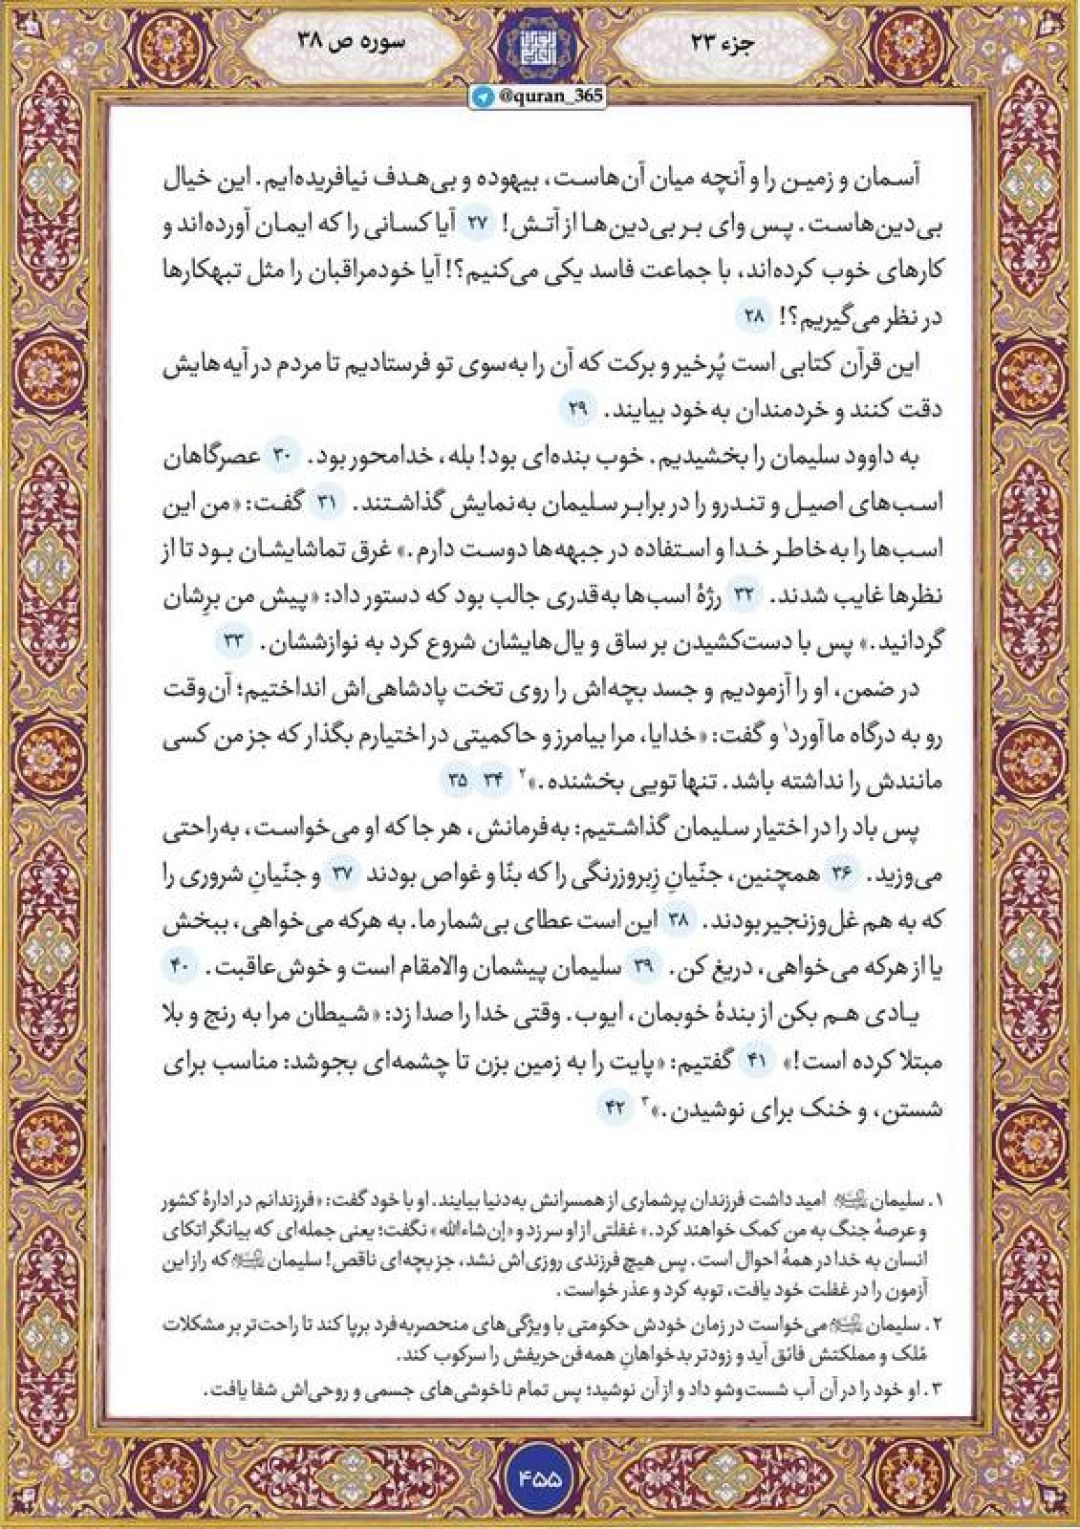 جزء ۲۳
سوره ص ۳۸
@quran_365
آسمان و زمین را و آنچه میان آن‌هاست، بیهوده و بی‌هدف نیافریده‌ایم. این خیال
بی‌دین‌هاست. پس وای بر بی‌دین‌ها از آتش! ۲۷ آیا کسانی را که ایمان آورده‌اند و
کارهای خوب کرده‌اند، با جماعت فاسد یکی می‌کنیم؟! آیا خودمراقبان را مثل تبهکارها
در نظر می‌گیریم؟! ۲۸
این قرآن کتابی است پُرخیر و برکت که آن را به‌سوی تو فرستادیم تا مردم در آیه‌هایش
دقت کنند و خردمندان به خود بیایند. ۲۹
به داوود سلیمان را بخشیدیم. خوب بنده‌ای بود! بله، خدامحور بود. ۳۰ عصرگاهان
اسب‌های اصیل و تندرو را در برابر سلیمان به‌نمایش گذاشتند. ۳۱ گفت: «من این
اسب‌ها را به‌خاطر خدا و استفاده در جبهه‌ها دوست دارم.» غرق تماشایشان بود تا از
نظرها غایب شدند. ۳۲ رژهٔ اسب‌ها به‌قدری جالب بود که دستور داد: «پیش من برِشان
گردانید.» پس با دست‌کشیدن بر ساق و یال‌هایشان شروع کرد به نوازششان. ۳۳
در ضمن، او را آزمودیم و جسد بچه‌اش را روی تخت پادشاهی‌اش انداختیم؛ آن‌وقت
رو به درگاه ما آورد۱ و گفت: «خدایا، مرا بیامرز و حاکمیتی در اختیارم بگذار که جز من کسی
مانندش را نداشته باشد. تنها تویی بخشنده.»۲ ۳۴ ۳۵
پس باد را در اختیار سلیمان گذاشتیم: به‌فرمانش، هر جا که او می‌خواست، به‌راحتی
می‌وزید. ۳۶ همچنین، جنّیانِ زِبروزرنگی را که بنّا و غواص بودند ۳۷ و جنّیانِ شروری را
که به هم غل‌وزنجیر بودند. ۳۸ این است عطای بی‌شمار ما. به هرکه می‌خواهی، ببخش
یا از هرکه می‌خواهی، دریغ کن. ۳۹ سلیمان پیشمان والامقام است و خوش‌عاقبت. ۴۰
یادی هم بکن از بندهٔ خوبمان، ایوب. وقتی خدا را صدا زد: «شیطان مرا به رنج و بلا
مبتلا کرده است!» ۴۱ گفتیم: «پایت را به زمین بزن تا چشمه‌ای بجوشد: مناسب برای
شستن، و خنک برای نوشیدن.»۳ ۴۲
۱. سلیمان امید داشت فرزندان پرشماری از همسرانش به‌دنیا بیایند. او با خود گفت: «فرزندانم در ادارهٔ کشور
و عرصهٔ جنگ به من کمک خواهند کرد.» غفلتی از او سر زد و «إن‌شاءالله» نگفت؛ یعنی جمله‌ای که بیانگر اتکای
انسان به خدا در همهٔ احوال است. پس هیچ فرزندی روزی‌اش نشد، جز بچه‌ای ناقص! سلیمان که راز این
آزمون را در غفلت خود یافت، توبه کرد و عذر خواست.
۲. سلیمان می‌خواست در زمان خودش حکومتی با ویژگی‌های منحصربه‌فرد برپا کند تا راحت‌تر بر مشکلات
مُلک و مملکتش فائق آید و زودتر بدخواهانِ همه‌فن‌حریفش را سرکوب کند.
۳. او خود را در آن آب شست‌وشو داد و از آن نوشید؛ پس تمام ناخوشی‌های جسمی و روحی‌اش شفا یافت.
۴۵۵